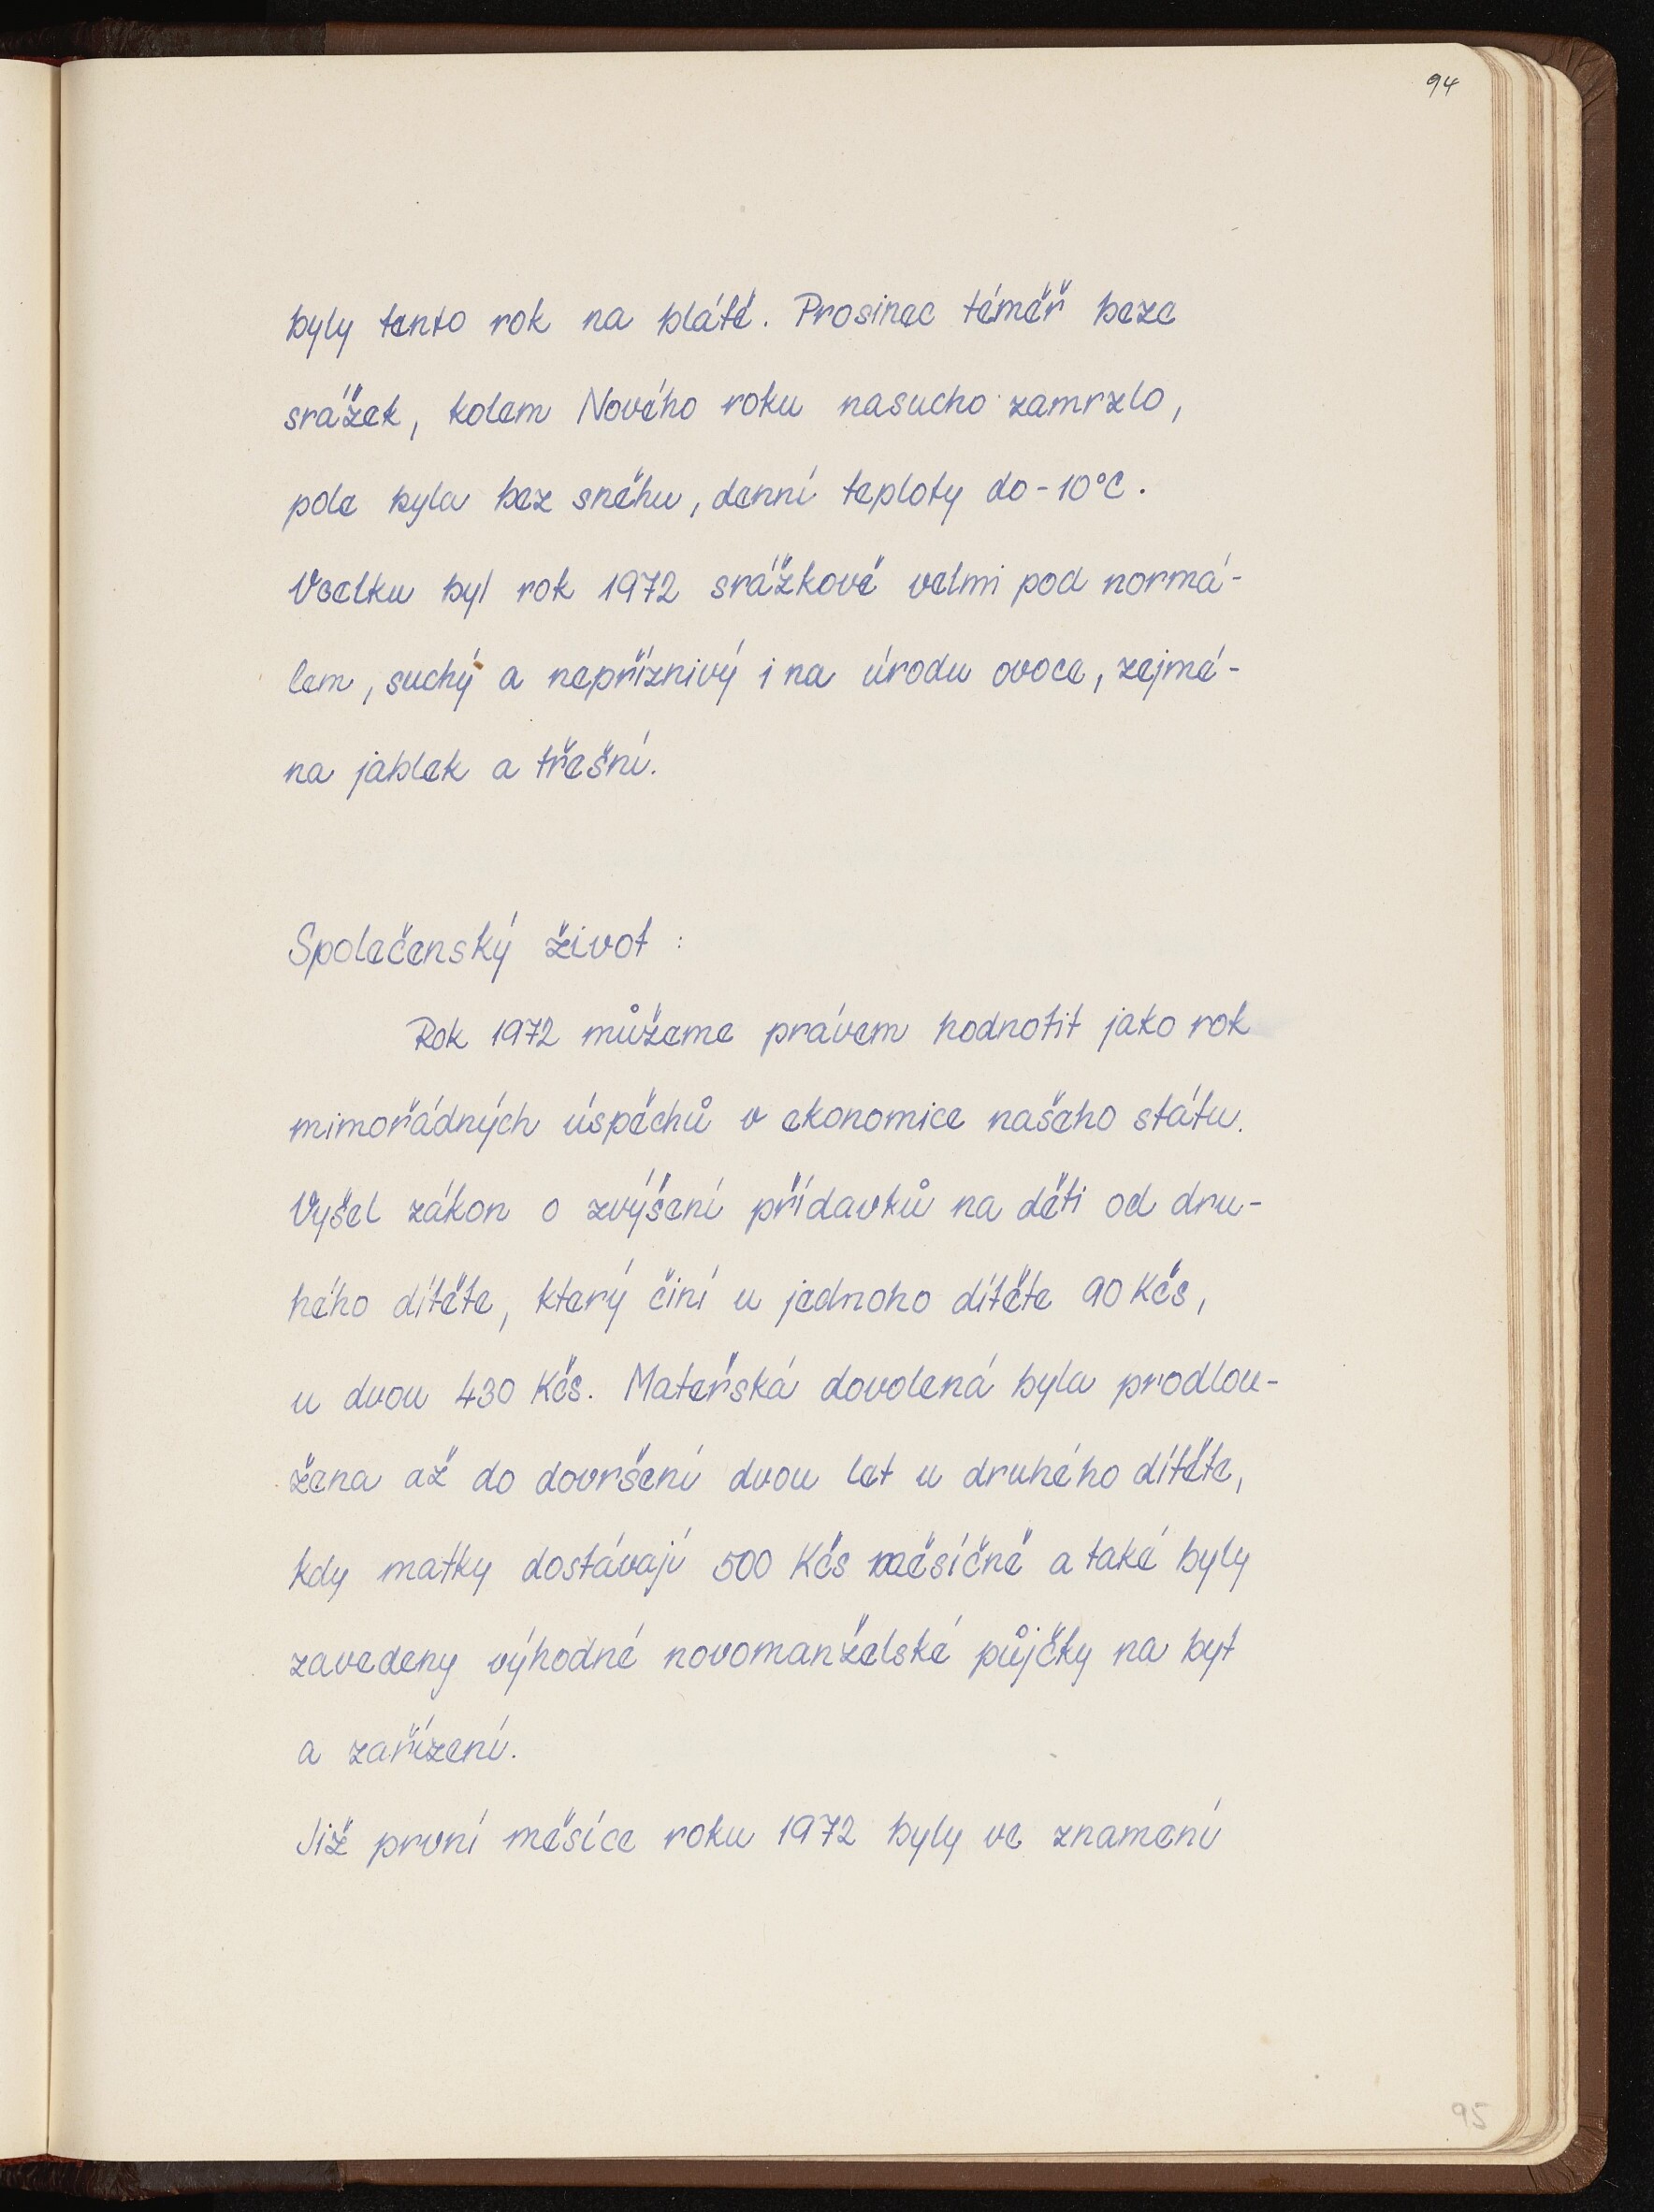 94
byly tento rok na blátě. Prosinec téměř beze
srážek, kolem Nového roku nasucho zamrzlo,
pole byla bez sněhu, denní teploty do -10°C.
Vcelku byl rok 1972 srážkově velmi pod normá-
lem, suchý a nepříznivý i na úrodu ovoce, zejmé-
na jablek a třešní.
Společenský život :
Rok 1972 můžeme právem hodnotit jako rok
mimořádných úspěchů v ekonomice našeho státu.
Vyšel zákon o zvýšení přídavků na děti od dru-
hého dítěte, který činí u jednoho dítěte 90 Kčs,
u dvou 430 Kčs. Mateřská dovolená byla prodlou-
žena až do dovršení dvou let u druhého dítěte,
kdy matky dostávají 500 Kčs měsíčně a také byly
zavedeny výhodné novomanželské půjčky na byt
a zařízení.
Již první měsíce roku 1972 byly ve znamení
95